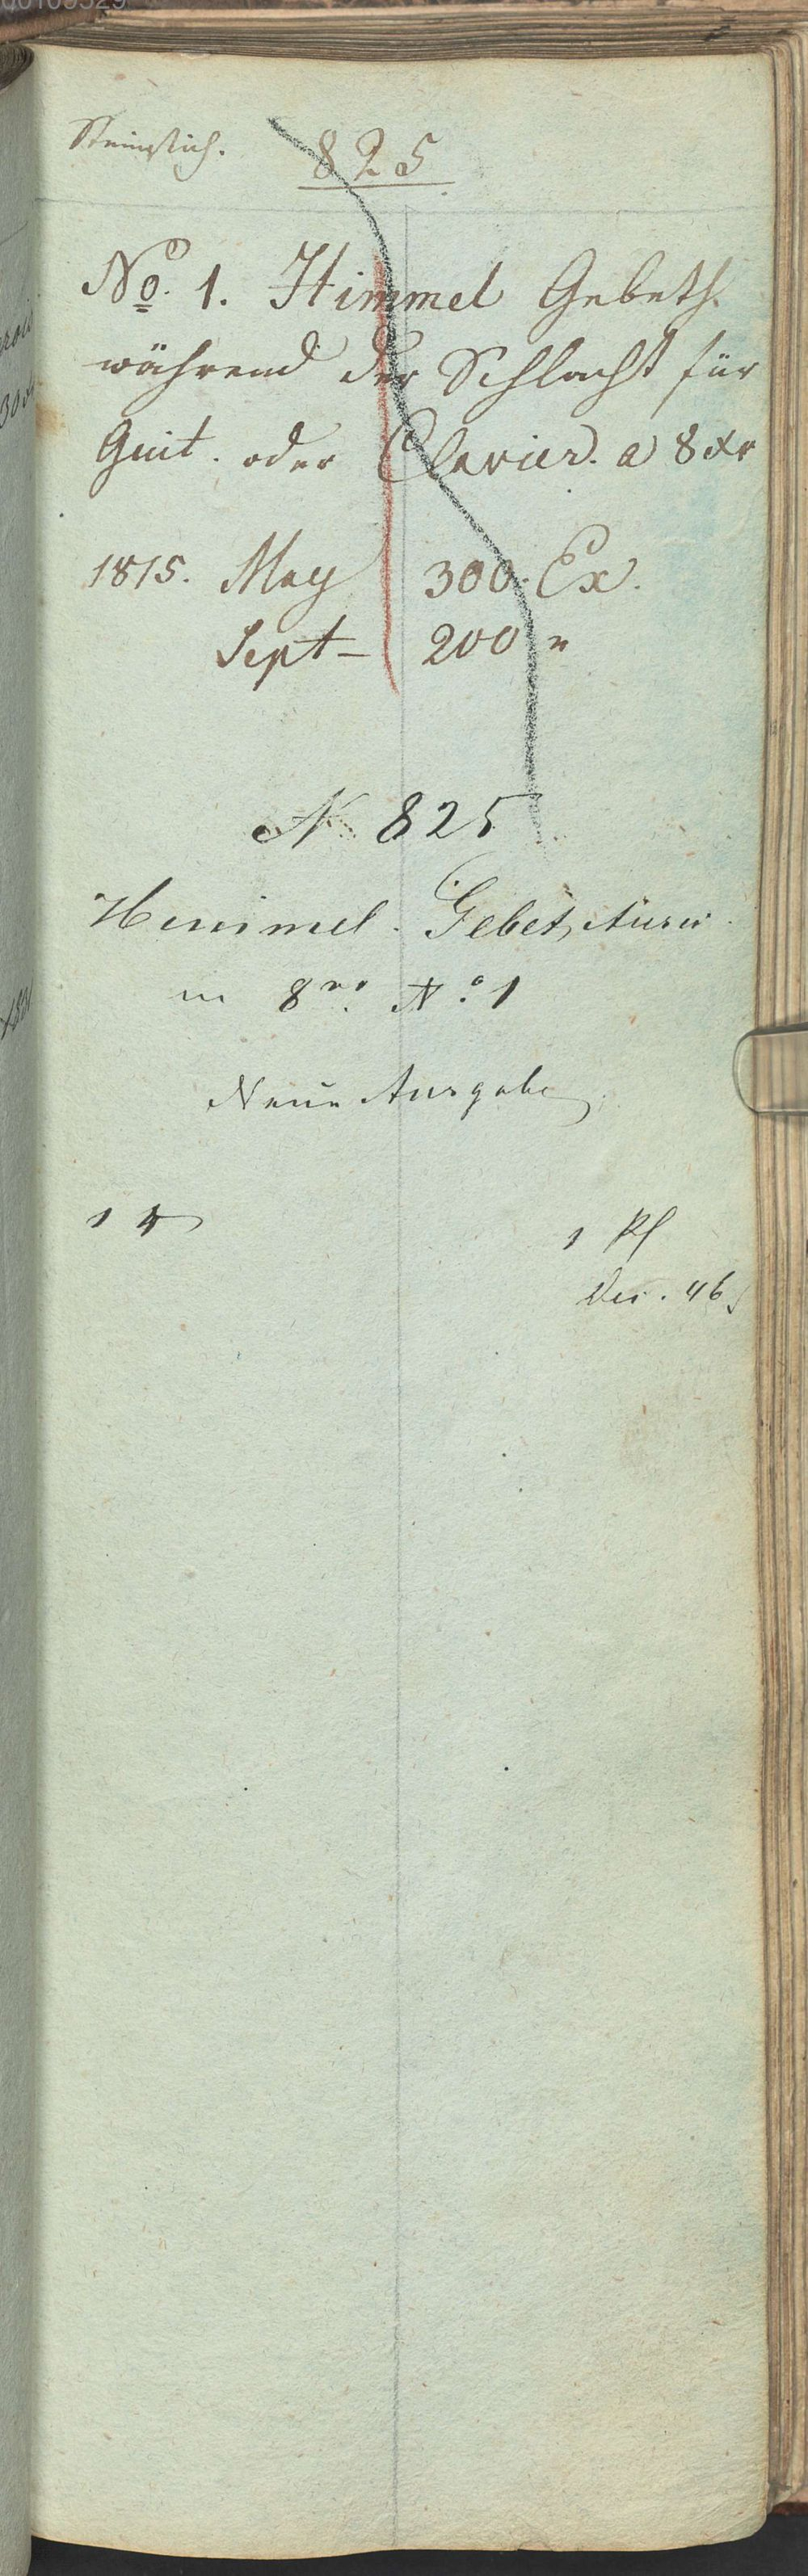 Steinstich.
825
No. 1. Himmel Gebeth
während der Schlacht für
Guit. oder Clavier. a 8 xr
1815. May 300. Ex.
Sept - 200 "
N 825
Himmel. Gebet,
in 8vo. No 1
Neue Ausgabe
1 Pl
46